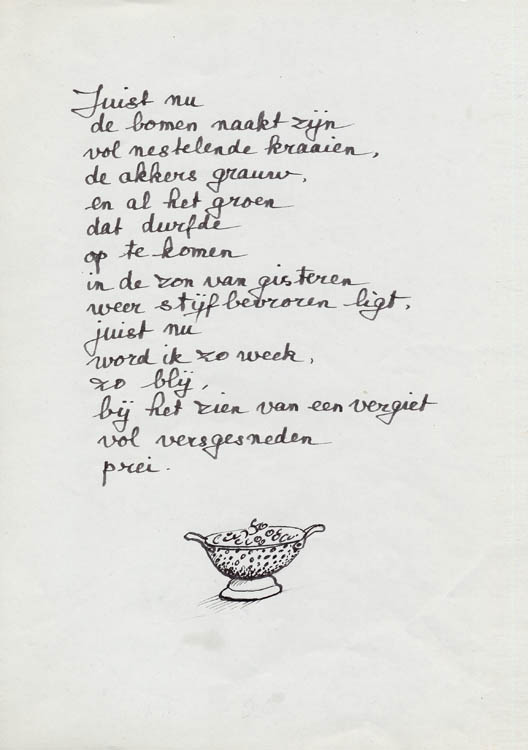 Juist nu
de bomen naakt zijn
vol nestelende kraaien,
de akkers grauw,
en al het groen
dat durfde
op te komen
in de zon van gisteren
weer stijf bevroren ligt,
juist nu
word ik zo week,
zo blij,
bij het zien van een vergiet
vol versgesneden
prei.